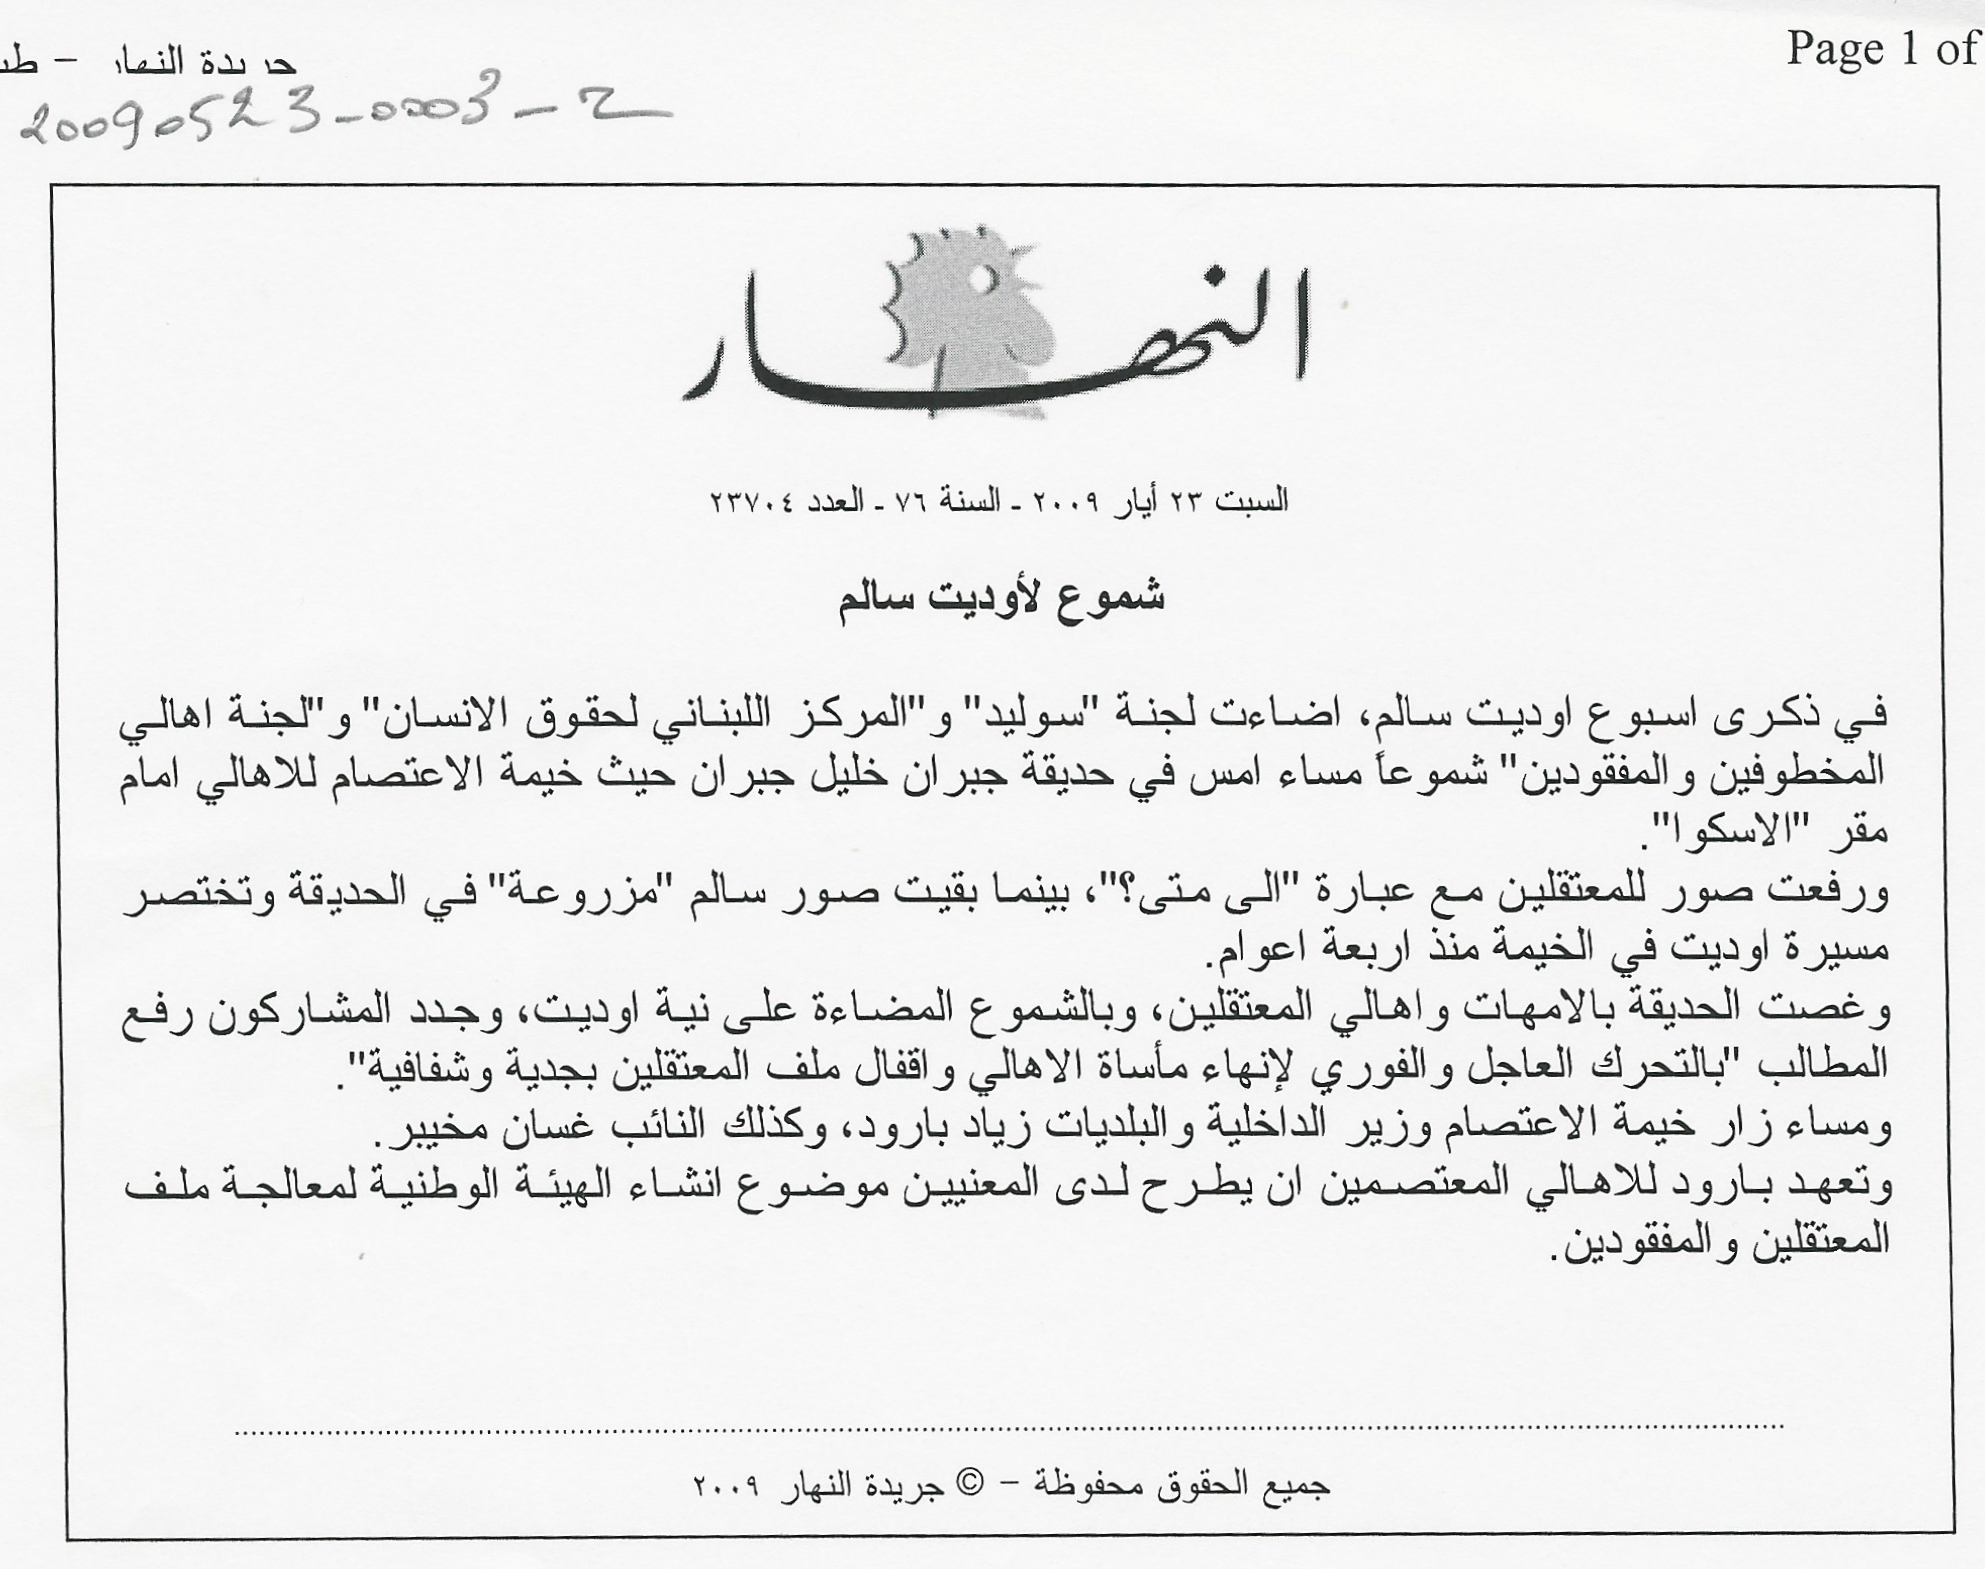 Page 1 of
جريدة النهار -
20090523-0003-2
النهار
السبت ٢٣ أيار ٢٠٠٩ - السنة ٧٦ - العدد ٢٣٧٠٤
شموع لأوديت سالم
في ذكرى اسبوع اوديت سالم، اضاءت لجنة "سوليد" و"المركز اللبناني لحقوق الانسان" و"لجنة اهالي
المخطوفين والمفقودين" شموعاً مساء امس في حديقة جبران خليل جبران حيث خيمة الاعتصام للاهالي امام
مقر "الاسكوا".
ورفعت صور للمعتقلين مع عبارة "الى متى؟"، بينما بقيت صور سالم "مزروعة" في الحديقة وتختصر
مسيرة اوديت في الخيمة منذ اربعة اعوام.
وغصت الحديقة بالامهات واهالي المعتقلين، وبالشموع المضاءة على نية اوديت، وجدد المشاركون رفع
المطالب "بالتحرك العاجل والفوري لإنهاء مأساة الاهالي واقفال ملف المعتقلين بجدية وشفافية".
ومساء زار خيمة الاعتصام وزير الداخلية والبلديات زياد بارود، وكذلك النائب غسان مخيبر.
وتعهد بارود للاهالي المعتصمين ان يطرح لدى المعنيين موضوع انشاء الهيئة الوطنية لمعالجة ملف
المعتقلين والمفقودين.
جميع الحقوق محفوظة - © جريدة النهار ٢٠٠٩